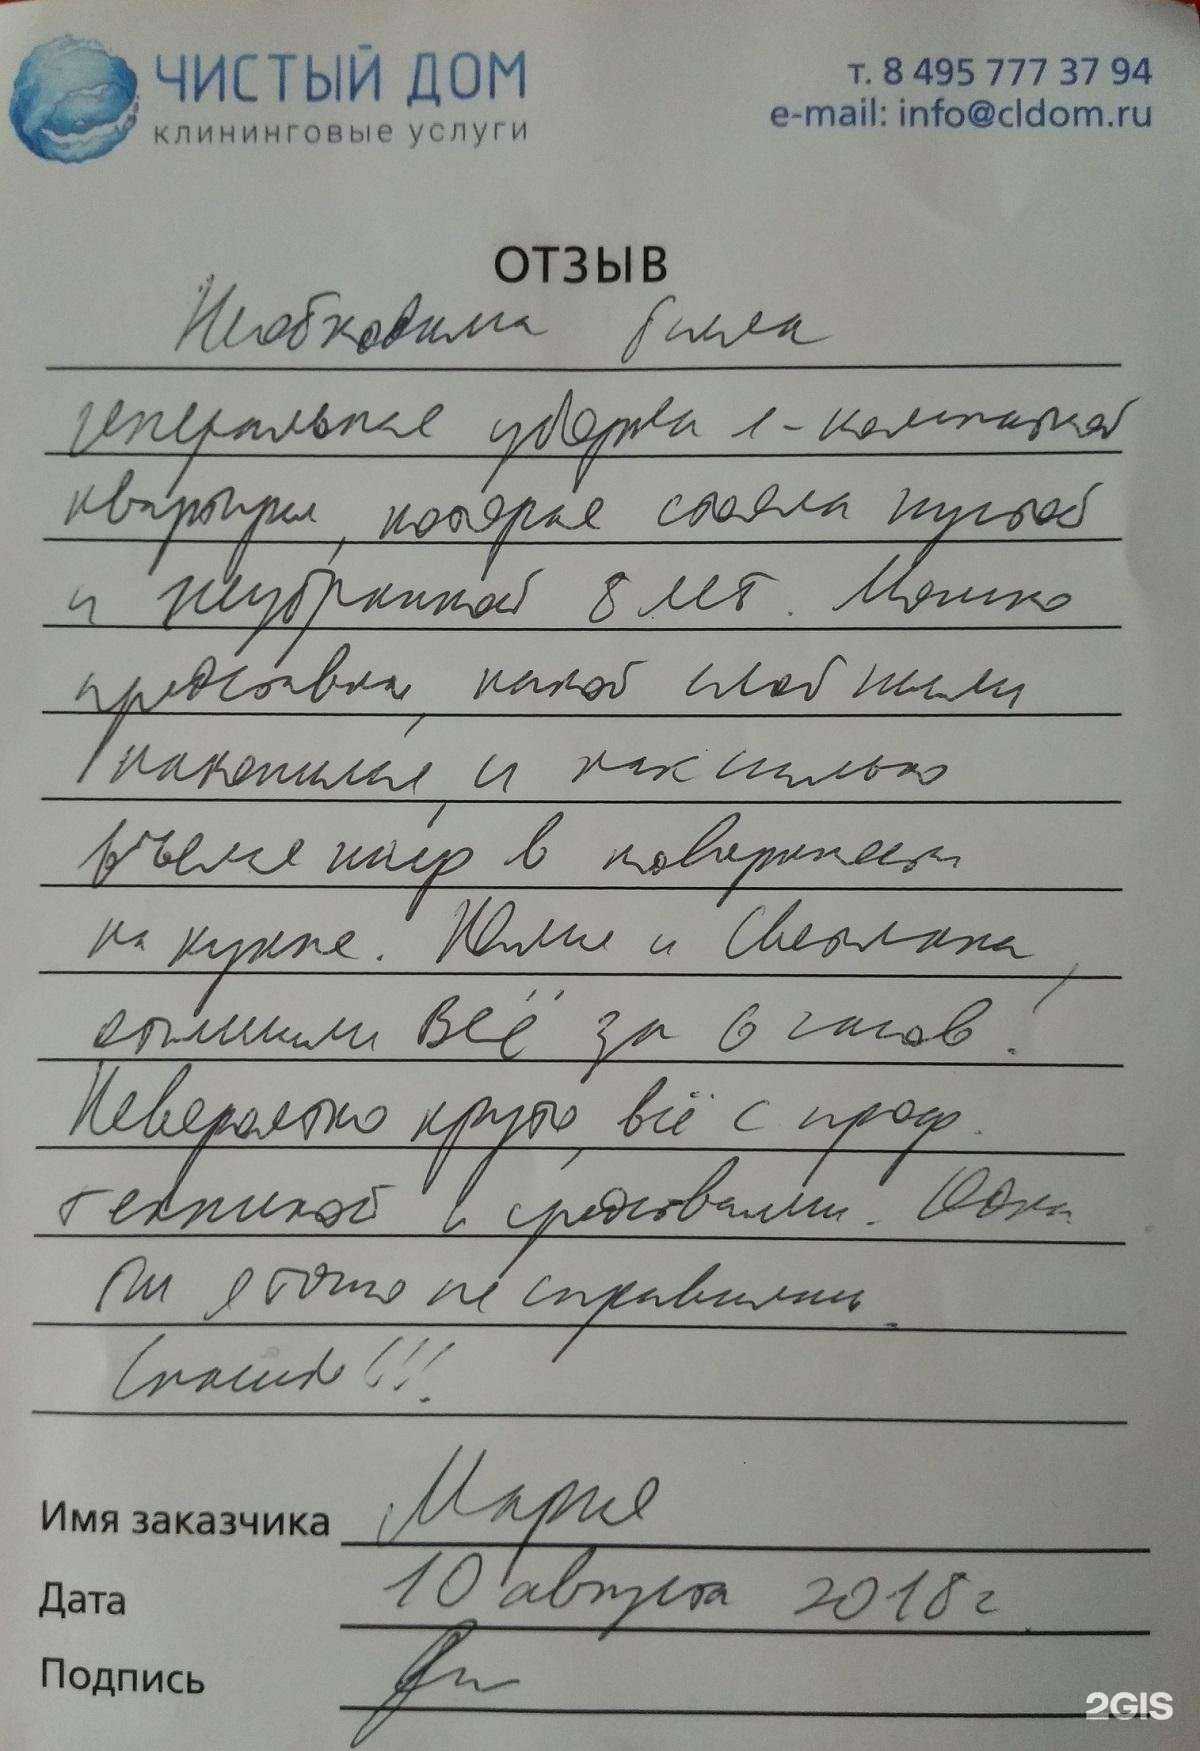 ЧИСТЫЙ ДОМ
клининговые услуги
т. 8 495 777 37 94
e-mail: info@cldom.ru
ОТЗЫВ
Необходима была
генеральная уборка 1-комнатной
квартиры, которая стояла пустой
и неубранной 8 лет. Можно
представить, какой слой пыли
накопился, и насколько
въелся жир в поверхности
на кухне. Юлия и Светлана,
отмыли всё за 6 часов!
Невероятно круто, всё с проф.
техникой и средствами. Одна
бы я точно не справилась.
Спасибо!!!
Имя заказчика Мария
Дата 10 августа 2018 г.
Подпись
2GIS